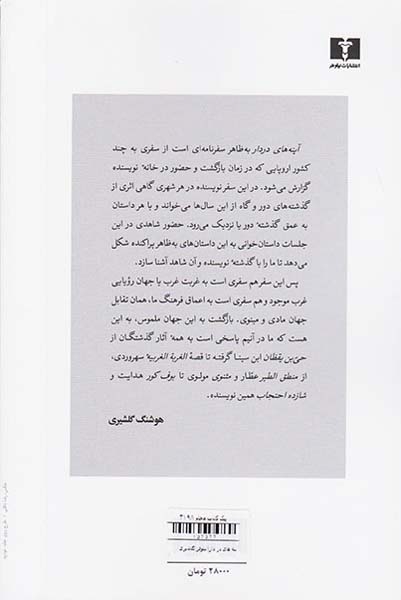 انتشارات نیلوفر
آینه‌های دردار به‌ظاهر سفرنامه‌ای است از سفری به چند
کشور اروپایی که در زمان بازگشت و حضور در خانهٔ نویسنده
گزارش می‌شود. در این سفر نویسنده در هر شهری گاهی اثری از
گذشته‌های دور و گاه از این سال‌ها می‌خواند و با هر داستان
به عمق گذشتهٔ دور یا نزدیک می‌رود. حضور شاهدی در این
جلسات داستان‌خوانی به این داستان‌های به‌ظاهر پراکنده شکل
می‌دهد تا ما را با گذشتهٔ نویسنده و آن شاهد آشنا سازد.
پس این سفر هم سفری است به غربت غرب یا جهان رؤیایی
غرب موجود و هم سفری است به اعماق فرهنگ ما، همان تقابل
جهان مادی و مینوی. بازگشت به این جهان ملموس، به این
هست که ما در آنیم پاسخی است به همهٔ آثار گذشتگان از
حی‌بن یقظان ابن سینا گرفته تا قصهٔ الغربة الغربیهٔ سهروردی، از
منطق الطیر عطار و مثنوی مولوی تا بوف کور هدایت و
شازده احتجاب همین نویسنده.
هوشنگ گلشیری
۲۸۰۰۰ تومان